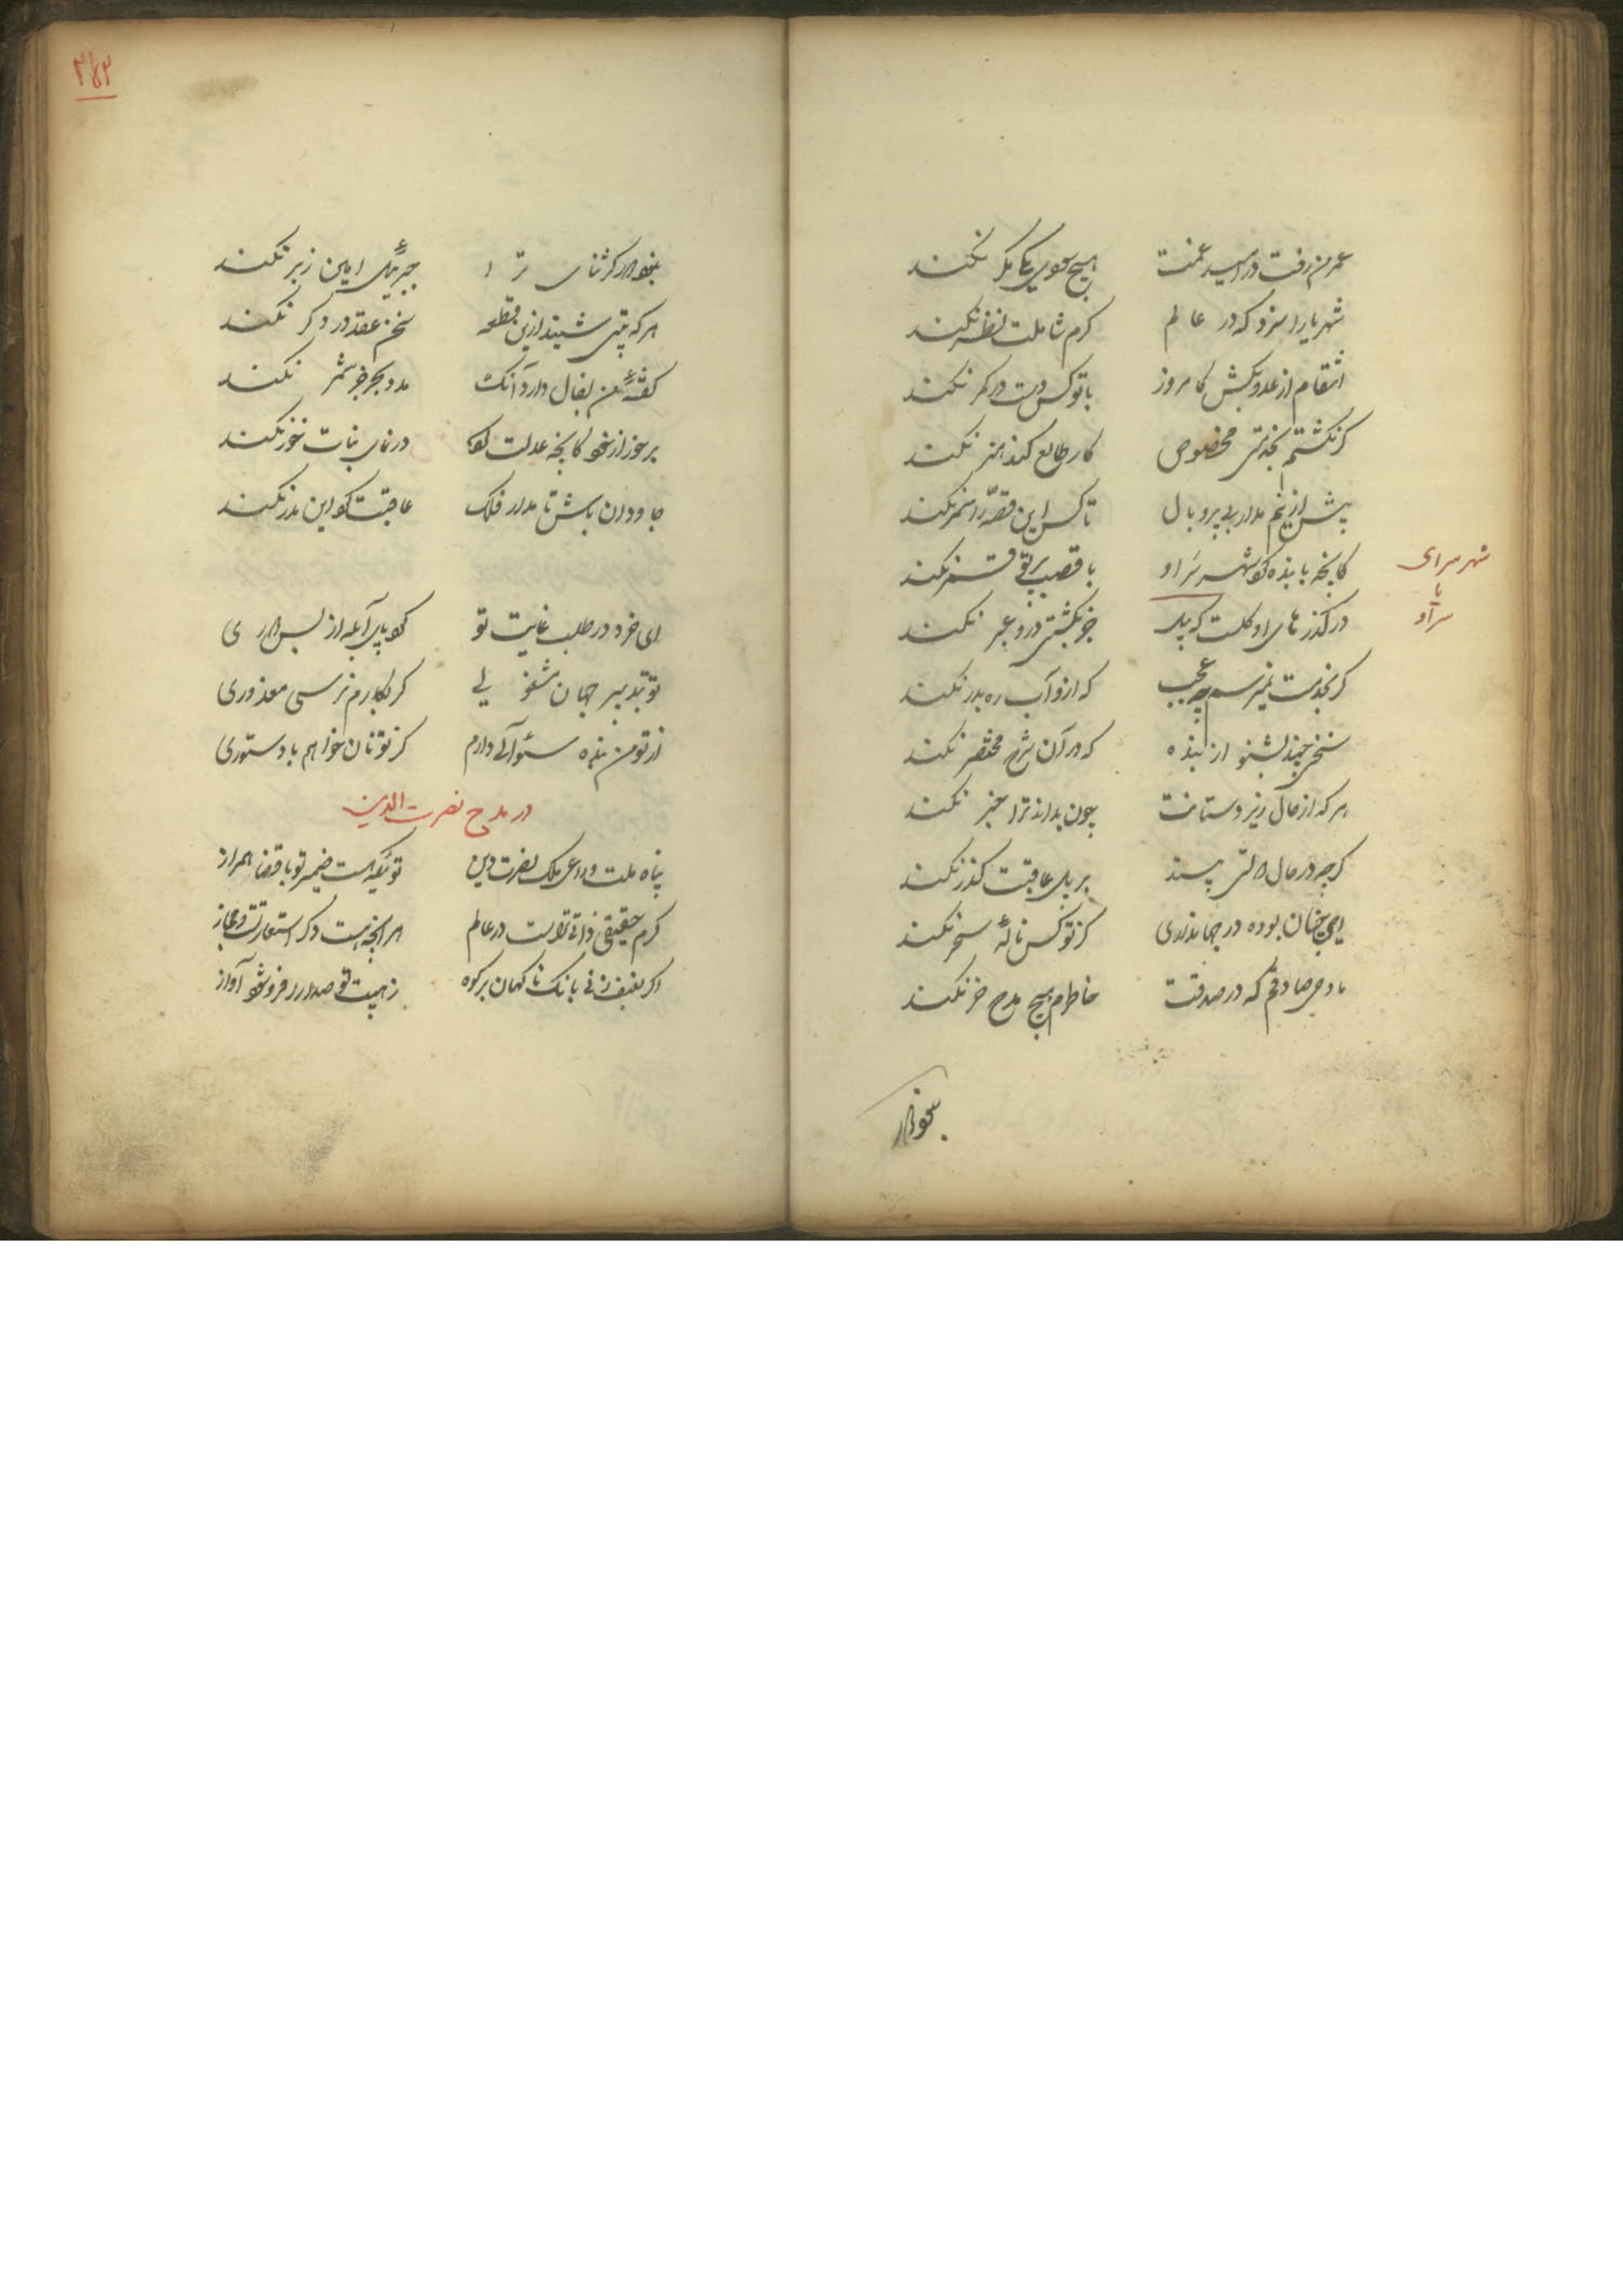 عمر من رفت در امید غمت هیچ سوی یکدگر نکند
شهریارا سزد که در عالم کرم شاملت نظر نکند
انتقام از عدو بکش کامروز با تو کس دست در کمر نکند
گر نگشتم بخدمتی مخصوص کار طالع کند هنر نکند
پیش ازینم مدار بی پر و بال تا کس این قصه را سمر نکند
کانچه با بنده کوشهر سراو با قصب پرتو قمر نکند
شهر سرای
یا
سراو
در گذرهای او گلست که پیل جز بکشتی درو عبر نکند
گر بخدمت نمیرسم چه عجب که ازو آب ره بدر نکند
سخنی چند بشنو از بنده که در آن شرح مختصر نکند
هر که از حال زیردستانت چون بداند ترا خبر نکند
گرچه در حال حالتی بیند بر پل عاقبت گذر نکند
ای چنان بوده در جهانداری کز تو کس نالهٔ سحر نکند
مادحی صادقم که در صدقت خاطرم هیچ مدح خر نکند
بخوذار
بخدا گر ثنای ترا جبرئیل امین ز بر نکند
هر که بیتی شنید ازین قطعه سخن عقد در دگر نکند
گفتهٔ من بفال دار از آنک مدد بحر جز شمر نکند
برخور از خود کانچه عدلت کو در نمای نبات خور نکند
جاودان باش تا مدار فلک عاقبت کو این مدر نکند
ای خرد در طلب غایت تو کو پای آبله از بس
تو تدبیر جهان مشغولی گر بکارم نرسی معذوری
از تو من بنده سئوالی دارم کز تو نان خواهم یا دستوری
در مدح نصرت الدین
پناه ملت و داعی ملک نصرت دین تویی که هست ضمیر تو با قضا همراز
کرم حقیقی ذاتی تراست در عالم هر آنچه هست دگر استعارتست و مجاز
اگر بعنف زنی بانک ناگهان بر کوه ز هیبت تو صدا را فرو شود آواز